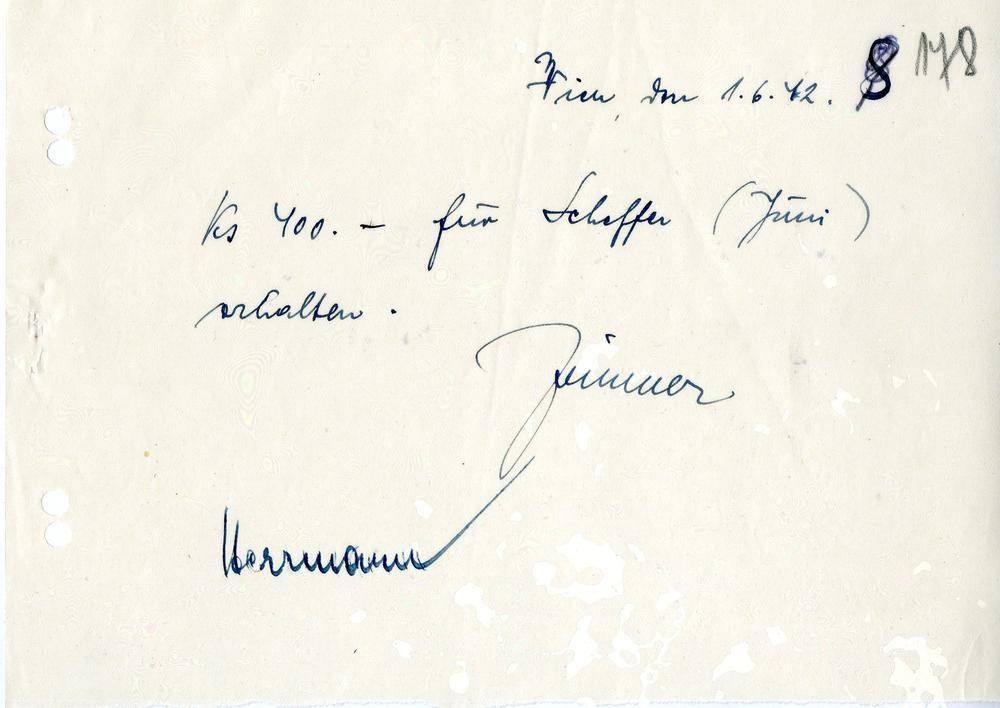 Wien, den 1.6.42. 8 178
Ks 400.- für Scheffer (Juni)
erhalten.
Zimmer
Herrmann